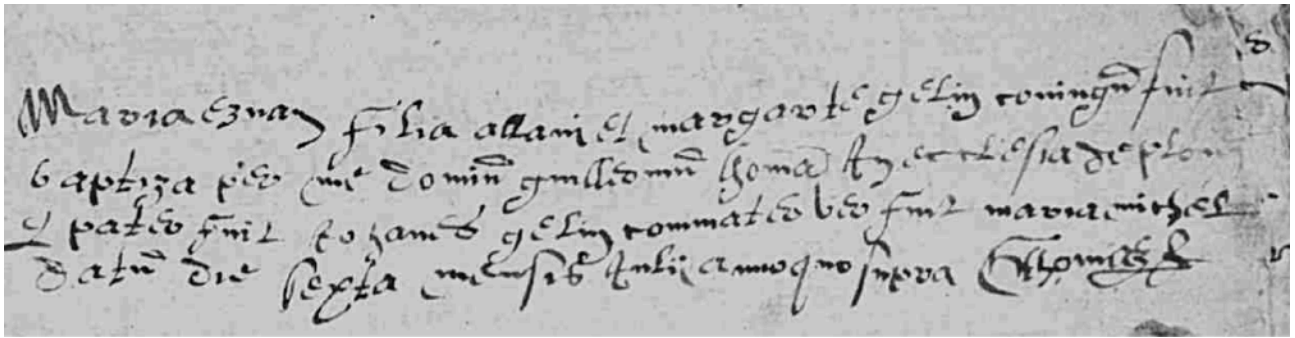 Maria eznan filia allani et margarte gelin coniugu fuit
baptiza per me dominu guillermu thoma In ecclesia de plou
pater fuit Iohanes gelin commater vero fuit maria michel
datu die sexta mensis Iulii anno quo supra